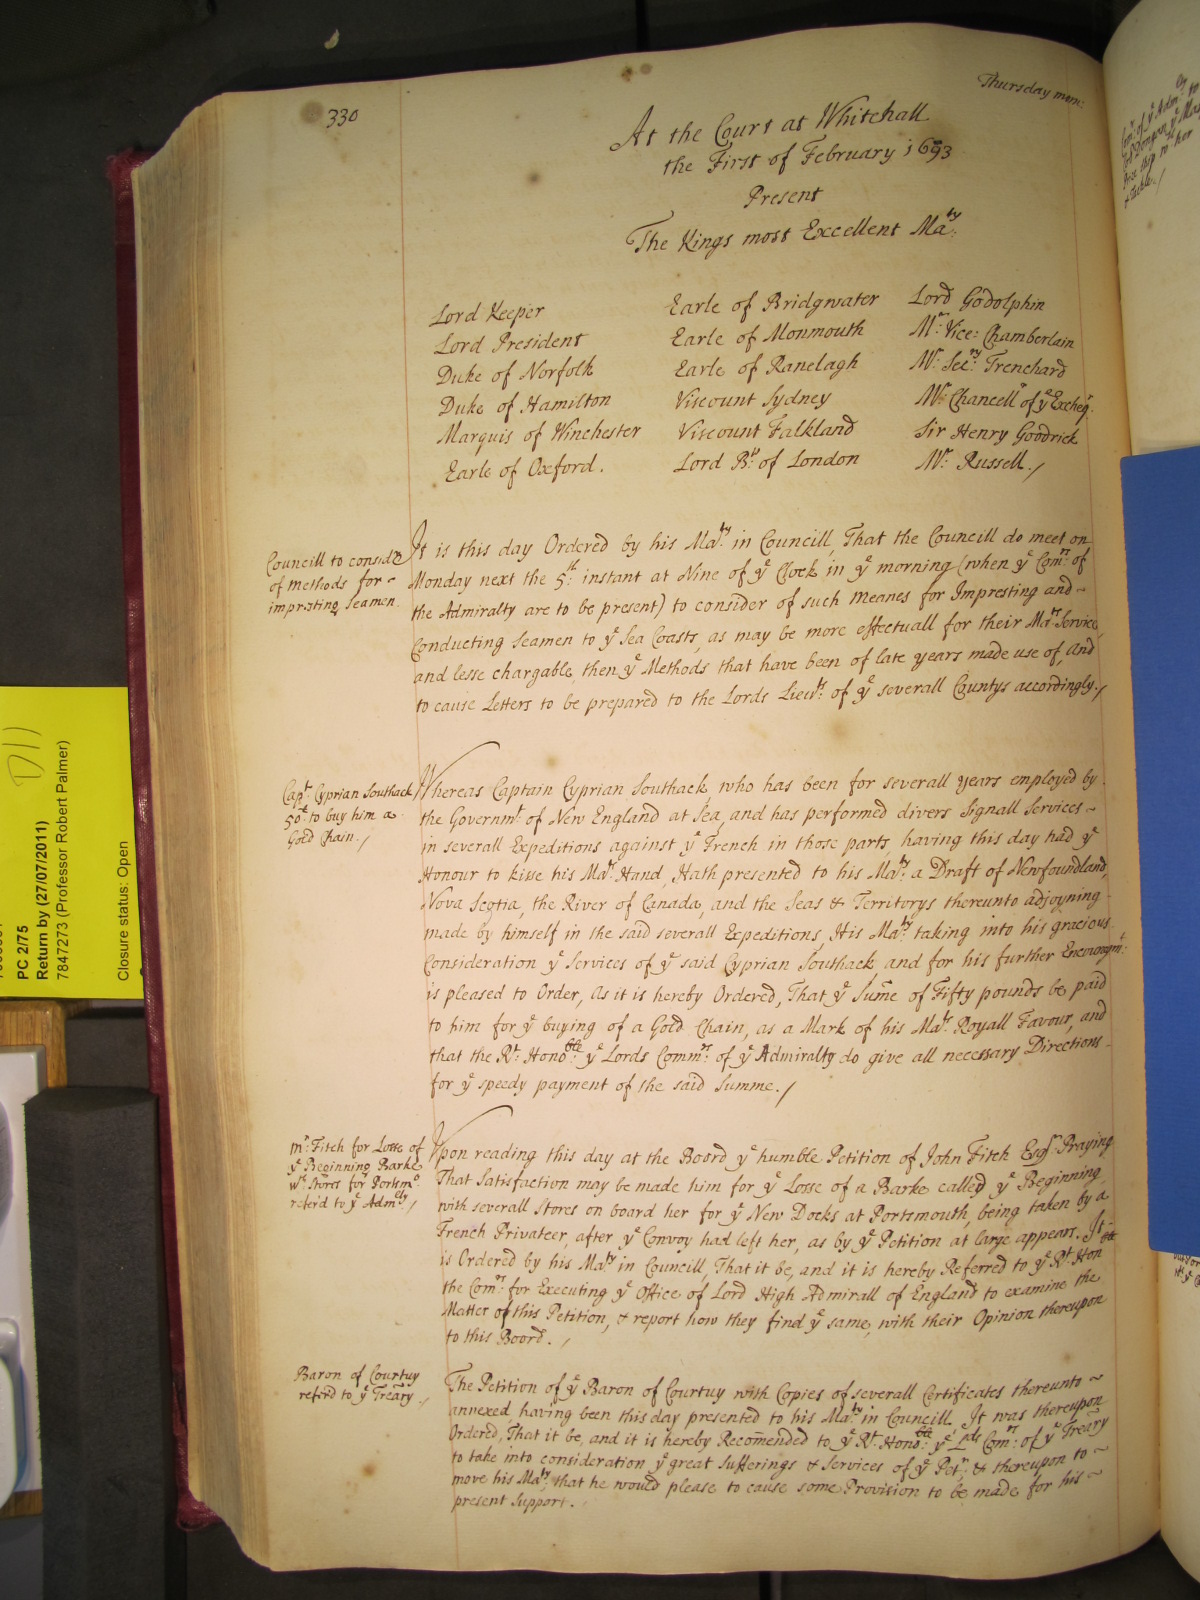 330
Thursday morn:
At the Court at Whitehall
the First of February 1693
Present
The Kings most Excellent Maty:
Lord Keeper
Lord President
Duke of Norfolk
Duke of Hamilton
Marquis of Winchester
Earle of Oxford.
Earle of Bridgwater
Earle of Monmouth
Earle of Ranelagh
Viscount Sydney
Viscount Falkland
Lord Bp: of London
Lord Godolphin
Mr: Vice: Chamberlain
Mr: Secry: Trenchard
Mr: Chancellr of ye Excheqr.
Sir Henry Goodrick
Mr: Russell./
Councill to consider
of Methods for -
impresting Seamen.
It is this day Ordered by his Maty: in Councill, That the Councill do meet on
Monday next the 5th: instant at Nine of ye Clock in ye morning (when ye Comrs: of
the Admiralty are to be present) to consider of such Meanes for Impresting and ~
Conducting Seamen to ye Sea Coasts, as may be more effectuall for their Mats: Service,
and lesse chargable, then ye Methods that have been of late years made use of, And
to cause Letters to be prepared to the Lords Lieuts: of ye severall Countys accordingly./
Capt: Cyprian Southack
50£: to buy him a
Gold Chain./
Whereas Captain Cyprian Southack who has been for severall years employed by
the Governmt: of New England at Sea, and has performed divers Signall Services ~
in severall Expeditions against ye French in those parts, having this day had ye
Honour to kisse his Mats: Hand, Hath presented to his Maty: a Draft of Newfoundland,
Nova Scotia, the River of Canada, and the Seas & Territorys thereunto adjoyning
made by himself in the said severall Expeditions, His Maty: taking into his gracious
Consideration ye Services of ye said Cyprian Southack, and for his further Encouragmt:
is pleased to Order, As it is hereby Ordered, That ye Sum̄e of Fifty pounds be paid
to him for ye buying of a Gold Chain, as a Mark of his Mats: Royall Favour, and
that the Rt: Honoble: ye Lords Commrs: of ye Admiralty do give all necessary Directions
for ye speedy payment of the said Summe./
Mr: Fitch for Losse of
ye Beginning Barke
wth: Stores for Portsmo:
referd to ye Admlty:/
Upon reading this day at the Board ye humble Petition of John Fitch Esqr: Praying
That Satisfaction may be made him for ye Losse of a Barke called ye Beginning,
with severall Stores on board her for ye New Docks at Portsmouth, being taken by a
French Privateer, after ye Convoy had left her, as by ye Petition at large appears. It -
is Ordered by his Maty in Councill, That it be, and it is hereby Referred to ye Rt: Honble
the Comrs: for Executing ye Office of Lord High Admirall of England to examine the
Matter of this Petition, & report how they find ye same, with their Opinion thereupon
to this Board./
Baron of Courtuy
referd to ye Treãry./
The Petition of ye Baron of Courtuy with Copies of severall Certificates thereunto ~
annexed, having been this day presented to his Maty: in Councill, It was thereupon
Ordered, That it be, and it is hereby Recom̄ended to ye Rt: Honoble: ye Lds Comrs: of ye Treãry
to take into consideration ye great Sufferings & Services of ye Petr: & thereupon to ~
move his Maty: that he would please to cause some Provision to be made for his ~
present Support.
D11
PC 2/75
Return by (27/07/2011)
7847273 (Professor Robert Palmer)
Closure status: Open